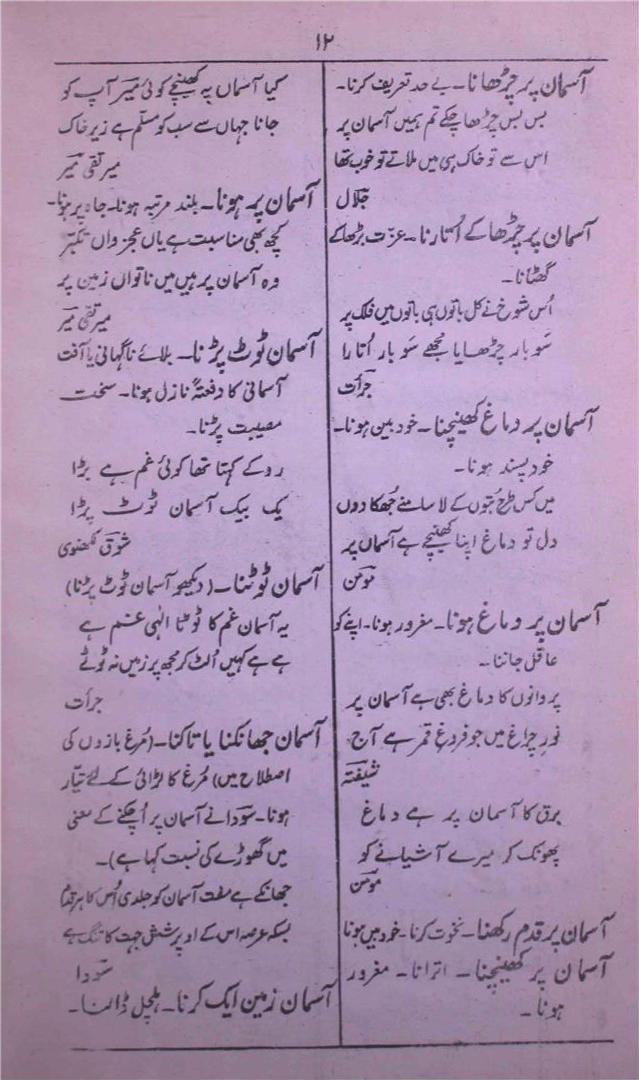 ۱۲
آسمان پر چڑھانا۔ بے حد تعریف کرنا۔
بس بس چڑھا چکے تم ہمیں آسمان پر
اس سے تو خاک ہی میں ملاتے تو خوب تھا
جلال
آسمان پر چڑھا کے اُتارنا۔ عزت بڑھا کے
گھٹانا۔
اُس شوخ نے کل باتوں ہی باتوں میں فلک پر
سَو بار چڑھایا مجھے سَو بار اُتارا
جرأت
آسمان پر دماغ کھینچنا۔ خود بین ہونا۔
خود پسند ہونا۔
میں کس طرح بُتوں کے لا سامنے جُھکا دوں
دل تو دماغ اپنا کھینچے ہے آسماں پر
مومن
آسمان پر دماغ ہونا۔ مغرور ہونا۔ اپنے کو
عاقل جاننا۔
پروانوں کا دماغ بھی ہے آسمان پر
نورِ چراغ میں جو فروغِ قمر ہے آج
شیفتہ
برق کا آسمان پر ہے دماغ
پھونک کر میرے آشیانے کو
مومن
آسمان پر قدم رکھنا۔ نخوت کرنا۔ خود بین ہونا
آسمان پر کھینچنا۔ اترانا۔ مغرور
ہونا۔
کیا آسماں پہ کھینچے کوئی میر آپ کو
جانا جہاں سے سب کو مسلّم ہے زیر خاک
میر تقی میر
آسمان پر ہونا۔ بلند مرتبہ ہونا۔ جاہ پر ہونا۔
کچھ بھی مناسبت ہے یاں عجز واں تکبّر
وہ آسمان پر ہیں میں ناتواں زمین پر
میر تقی میر
آسمان ٹوٹ پڑنا۔ بلائے ناگہانی یا آفت
آسمانی کا دفعتہً نازل ہونا۔ سخت
مصیبت پڑنا۔
رو کے کہتا تھا کوئی غم ہے بڑا
یک بیک آسمان ٹوٹ پڑا
شوق لکھنوی
آسمان ٹوٹنا۔ (دیکھو آسمان ٹوٹ پڑنا)
یہ آسمان غم کا ٹوٹا الٰہی غم ہے
ہے ہے کہیں اُلٹ کر مجھ پر زمیں نہ ٹوٹے
جرأت
آسمان جھانکنا یا تاکنا۔ (مُرغ بازوں کی
اصطلاح میں) مُرغ کا لڑائی کے لئے تیار
ہونا۔ سودا نے آسمان پر اُچکنے کے معنی
میں گھوڑے کی نسبت کہا ہے)۔
جھانکے ہے ہفت آسمان کو جلدی اُس کا ہر قدم
بسکہ عرصہ اس کے اوپر شش جہت کا تنگ ہے
سودا
آسمان زمین ایک کرنا۔ ہلچل ڈالنا۔